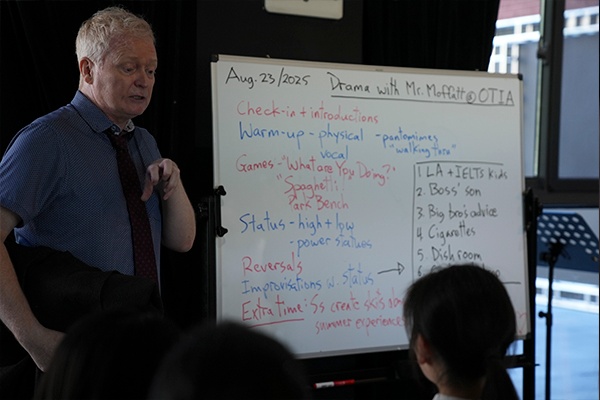 Aug. 23/2025 Drama with Mr. Moffatt @ OTIA
Check-in + introductions
Warm-up - physical - pantomimes
vocal "walking thru"
Games - "What are You Doing?"
"Spaghetti
Park Bench
Status - high + low
- power statues
Reversals
Improvisations w. status →
Extra time: Ss create skits
summer experience
1. LA + IELTS kids
2. Boss' son
3. Big bro's advice
4. Cigarettes
5. Dishroom
6.